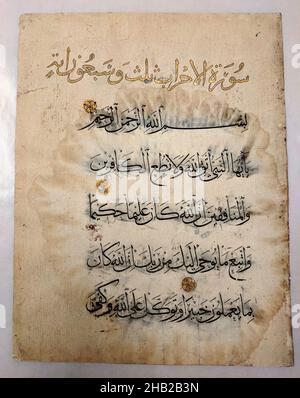 سورة الاحزاب ثلث وسبعون اية
بسم الله الرحمن الرحيم
يا أيها النبي اتق الله ولا تطع الكافرين
والمنافقين إن الله كان عليما حكيما
واتبع ما يوحى إليك من ربك إن الله كان
بما تعملون خبيرا وتوكل على الله وكفى
alamy
Image ID: 2HB2B3N
www.alamy.com